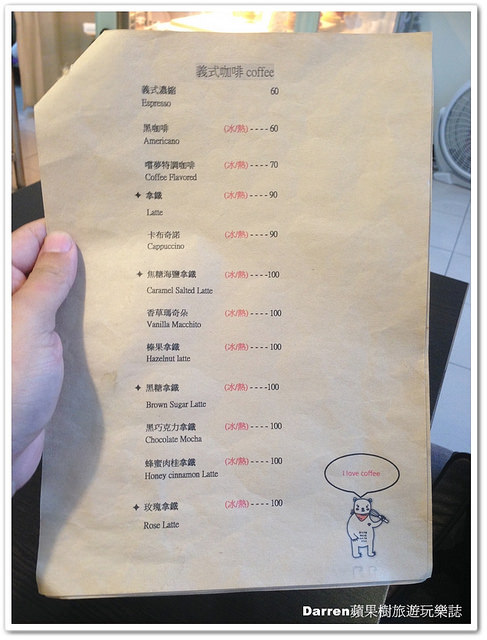 義式咖啡 coffee
義式濃縮 60
Espresso
黑咖啡 (冰/熱) ---- 60
Americano
嚐夢特調咖啡 (冰/熱) ---- 70
Coffee Flavored
✦ 拿鐵 (冰/熱) ---- 90
Latte
卡布奇諾 (冰/熱) ---- 90
Cappuccino
✦ 焦糖海鹽拿鐵 (冰/熱) ----100
Caramel Salted Latte
香草瑪奇朵 (冰/熱) ---- 100
Vanilla Macchito
榛果拿鐵 (冰/熱) ---- 100
Hazelnut latte
✦ 黑糖拿鐵 (冰/熱) ----100
Brown Sugar Latte
黑巧克力拿鐵 (冰/熱) ---- 100
Chocolate Mocha
蜂蜜肉桂拿鐵 (冰/熱) ---- 100
Honey cinnamon Latte
✦ 玫瑰拿鐵 (冰/熱) ---- 100
Rose Latte
I love coffee
Darren蘋果樹旅遊玩樂誌